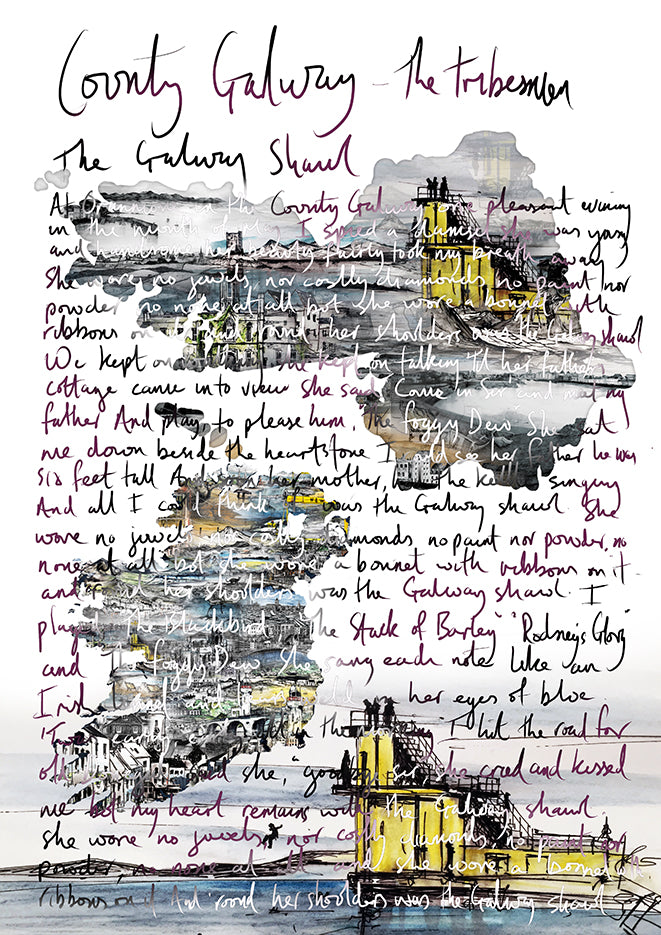 County Galway - The Tribesmen
The Galway Shawl
At Oranmore in the County Galway one pleasant evening
in the month of May I spied a damsel she was young
and handsome her beauty fairly took my breath away
She wore no jewels, nor costly diamonds, no paint nor
powder, no none at all but she wore a bonnet with
ribbons on it and round her shoulders was the Galway shawl
We kept on she kept on talking til her father's
cottage came into view She said, "Come in Sir, and meet my
father And play, to please him, The foggy Dew" She sat
me down beside the hearthstone I could see her father he was
six feet tall And soon her mother, had the kettle singing
And all I could think of was the Galway shawl. She
wore no jewels, nor costly diamonds no paint nor powder, no
none at all but she wore a bonnet with ribbons on it
and round her shoulders was the Galway shawl. I
played The Blackbird The Stack of Barley" "Rodney's Glory"
and The foggy Dew She sang each note like an
Irish and in her eyes of blue.
'Twas early in the morning I hit the road for
old said she, "goodbye sir, she cried and kissed
me but my heart remains with the Galway shawl
she wore no jewels, nor costly diamonds, no paint nor
powder, no none at all and she wore a bonnet with
ribbons on it And 'round her shoulders was the Galway shawl